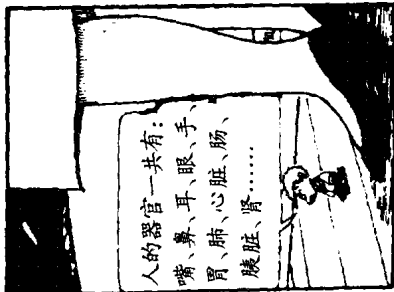 人的器官一共有：
嘴、鼻、耳、眼、手、
胃、肺、心脏、肠、
胰脏、肾……